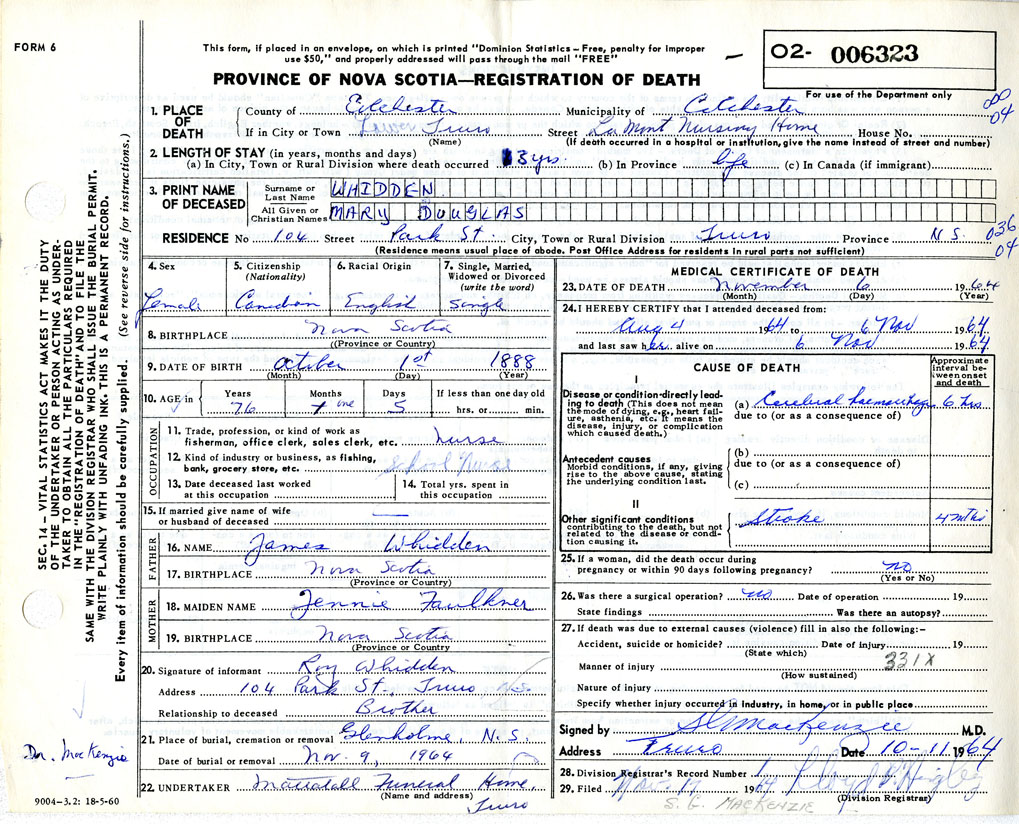 FORM 6
This form, if placed in an envelope, on which is printed "Dominion Statistics – Free, penalty for improper
use $50," and properly addressed will pass through the mail "FREE"
PROVINCE OF NOVA SCOTIA—REGISTRATION OF DEATH
O2- 006323
For use of the Department only
000
04
1. PLACE OF DEATH
County of Colchester Municipality of Colchester
If in City or Town Lower Truro Street La Mont Nursing Home House No.
(Name) (If death occurred in a hospital or institution, give the name instead of street and number)
2. LENGTH OF STAY (in years, months and days)
(a) In City, Town or Rural Division where death occurred 3 yrs. (b) In Province life (c) In Canada (if immigrant)
3. PRINT NAME OF DECEASED
Surname or Last Name WHIDDEN
All Given or Christian Names MARY DOUGLAS
RESIDENCE No 104 Street Park St. City, Town or Rural Division Truro Province N S.
(Residence means usual place of abode. Post Office Address for residents in rural parts not sufficient)
036
04
4. Sex
Female
5. Citizenship
(Nationality)
Canadian
6. Racial Origin
English
7. Single, Married,
Widowed or Divorced
(write the word)
Single
8. BIRTHPLACE Nova Scotia
(Province or Country)
9. DATE OF BIRTH October 1st 1888
(Month) (Day) (Year)
10. AGE in
Years Months Days If less than one day old
76 1 one 5 hrs. or min.
OCCUPATION
11. Trade, profession, or kind of work as
fisherman, office clerk, sales clerk, etc. nurse
12. Kind of industry or business, as fishing,
bank, grocery store, etc. School Nurse
13. Date deceased last worked
at this occupation
14. Total yrs. spent in
this occupation
15. If married give name of wife
or husband of deceased —
FATHER
16. NAME James Whidden
17. BIRTHPLACE Nova Scotia
(Province or Country)
MOTHER
18. MAIDEN NAME Jennie Faulkner
19. BIRTHPLACE Nova Scotia
(Province or Country)
20. Signature of informant Roy Whidden
Address 104 Park St., Truro N.S.
Relationship to deceased Brother
21. Place of burial, cremation or removal Glenholme N.S.
Date of burial or removal Nov. 9, 1964
22. UNDERTAKER Mattatall Funeral Home,
(Name and address) Truro
MEDICAL CERTIFICATE OF DEATH
23. DATE OF DEATH November 6 1964
(Month) (Day) (Year)
24. I HEREBY CERTIFY that I attended deceased from:
Aug 4 1964 to 6 Nov 1964
and last saw her alive on 6 Nov 1964
CAUSE OF DEATH
Approximate
interval be-
tween onset
and death
I
Disease or condition directly lead-
ing to death (This does not mean
the mode of dying, e.g., heart fail-
ure, asthenia, etc. It means the
disease, injury, or complication
which caused death.)
(a) Cerebral haemorrhage 6 hrs
due to (or as a consequence of)
Antecedent causes
Morbid conditions, if any, giving
rise to the above cause, stating
the underlying condition last.
(b)
due to (or as a consequence of)
(c)
II
Other significant conditions
contributing to the death, but not
related to the disease or condi-
tion causing it.
Stroke 4 mths
25. If a woman, did the death occur during
pregnancy or within 90 days following pregnancy? NO
(Yes or No)
26. Was there a surgical operation? no Date of operation 19
State findings Was there an autopsy?
27. If death was due to external causes (violence) fill in also the following:–
Accident, suicide or homicide? Date of injury 19
(State which)
331X
Manner of injury
(How sustained)
Nature of injury
Specify whether injury occurred in industry, in home, or in public place
Signed by SG MacKenzie M.D.
Address Truro Date 10-11 1964
28. Division Registrar's Record Number
29. Filed Nov. 1964 Lloyd
(Division Registrar)
S. G. MACKENZIE
SEC. 14 – VITAL STATISTICS ACT MAKES IT THE DUTY
OF THE UNDERTAKER OR PERSON ACTING AS UNDER-
TAKER TO OBTAIN ALL THE PARTICULARS REQUIRED
IN THE "REGISTRATION OF DEATH" AND TO FILE THE
SAME WITH THE DIVISION REGISTRAR WHO SHALL ISSUE THE BURIAL PERMIT.
WRITE PLAINLY WITH UNFADING INK. THIS IS A PERMANENT RECORD.
Every item of information should be carefully supplied. (See reverse side for instructions.)
Dr. MacKenzie
9004-3.2: 18-5-60